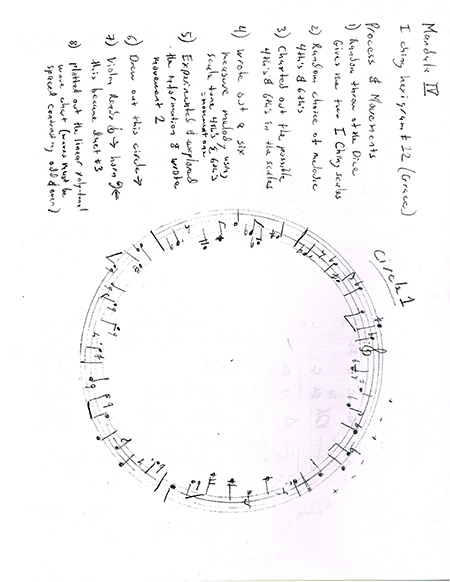 Mandala IV
I ching hexigram # 22 (Grace)
Process & Movements
1) Random throw of the Dice
Gives me two I Ching scales
2) Random choice of melodic
4ths & 6ths
3) Charted out the possible
4ths & 6ths in the scales
4) wrote out a six
measure melody using
scale tone 4ths & 6ths
5) Experimented & explored
the information & wrote
movement 2
6) Drew out this circle →
7) Viola reads → horn
this became duet #3
8) plotted out the linear
wave chart (waves must be
spaced contrasting odd & even)
Circle 1